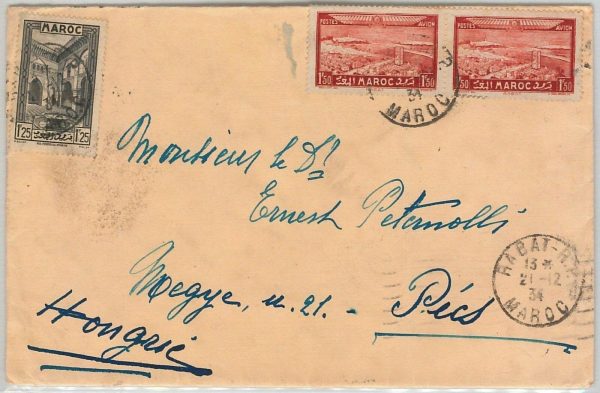 MAROC
1F25 1F25
POSTES AVION
1F50 MAROC 1F50
POSTES AVION
1F50 MAROC 1F50
34
MAROC
Monsieur le Dr
Ernest Petanolli
Megye, u. 21. - Pécs
Hongrie
RABAT-R.P.
13 *
21-12
34
MAROC